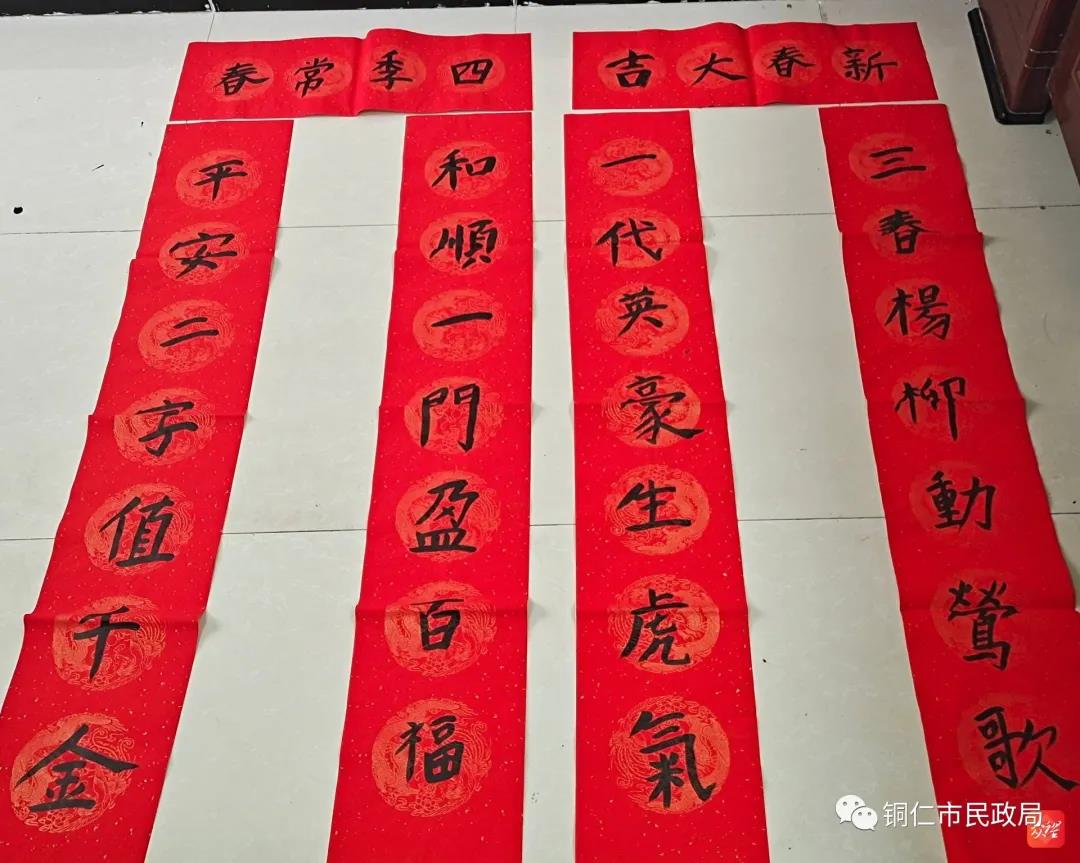 新春大吉
三春楊柳動鶯歌
一代英豪生虎氣
四季常春
和順一門盈百福
平安二字值千金
铜仁市民政局
众望